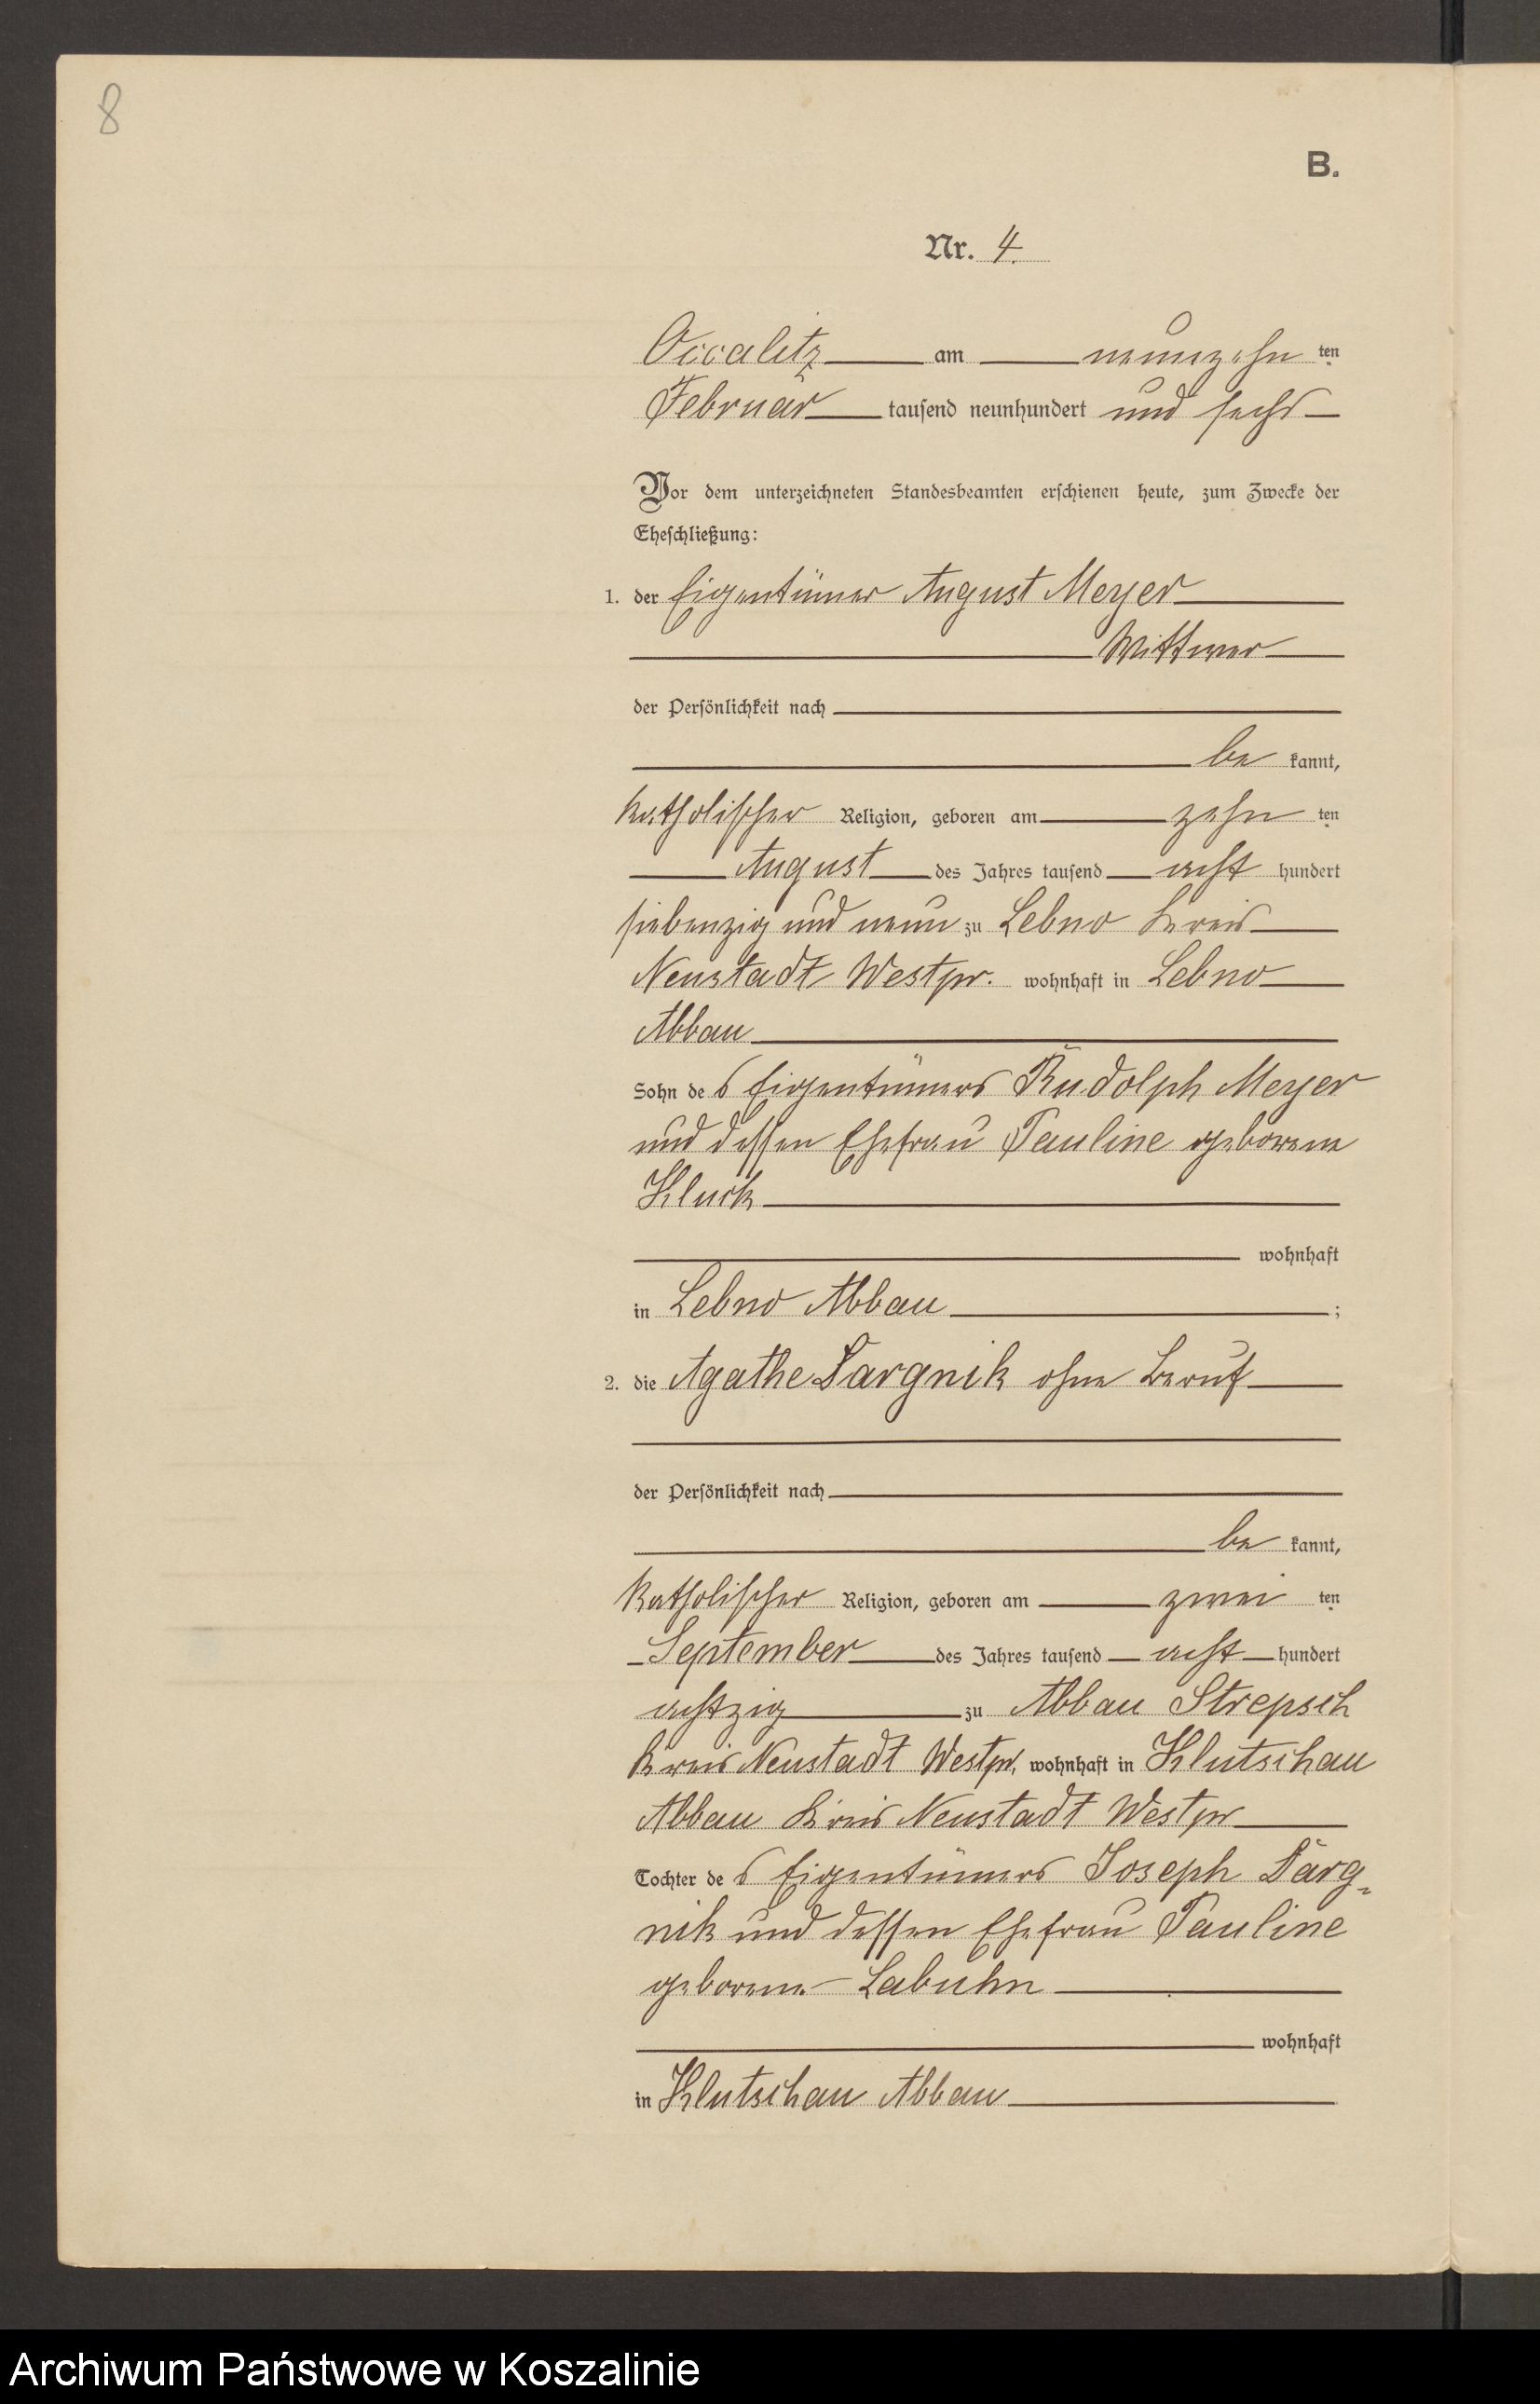 8
B.
Nr. 4.
Occalitz am neunzehn ten
Februar tausend neunhundert und sechs
Vor dem unterzeichneten Standesbeamten erschienen heute, zum Zwecke der
Eheschließung:
1. der Eigentümer August Meyer
Wittwer
der Persönlichkeit nach
be kannt,
katholischer Religion, geboren am zehn ten
August des Jahres tausend acht hundert
siebenzig und neun zu Lebno Kreis
Neustadt Westpr. wohnhaft in Lebno
Abbau
Sohn des Eigentümers Rudolph Meyer
und dessen Ehefrau Pauline geborene
Kluck
wohnhaft
in Lebno Abbau ;
2. die Agathe Dargnik ohne Beruf
der Persönlichkeit nach
be kannt,
katholischer Religion, geboren am zwei ten
September des Jahres tausend acht hundert
achtzig zu Abbau Strepsch
Kreis Neustadt Westpr. wohnhaft in Klutschau
Abbau Kreis Neustadt Westpr
Tochter des Eigentümers Joseph Darg=
nik und dessen Ehefrau Pauline
geborene Labuhn
wohnhaft
in Klutschau Abbau
Archiwum Państwowe w Koszalinie